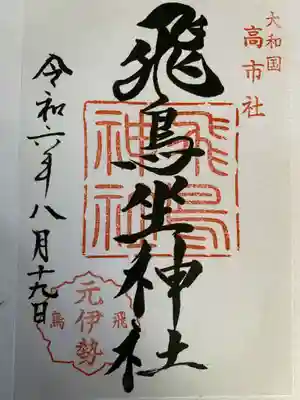 大和国
高市社
飛鳥坐神社
飛鳥
神社
令和六年八月十九日
飛鳥
元伊勢